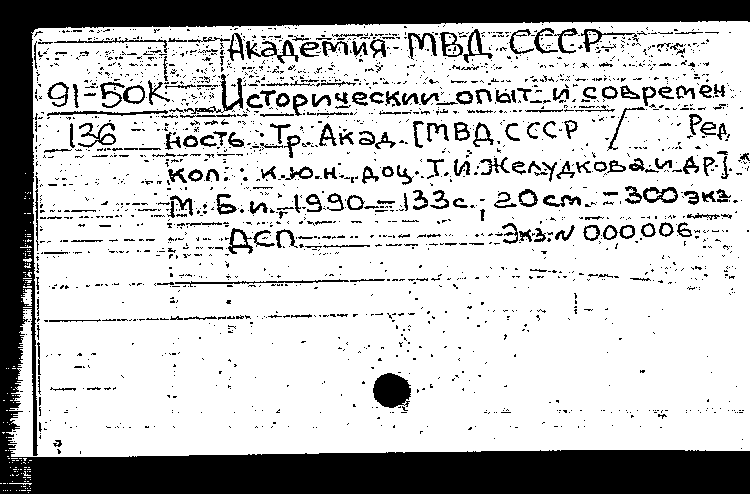 Академия МВД СССР
91-50К Исторический опыт и современ
136 ность : Тр. Акад. [МВД СССР / Ред
кол.: к.ю.н., доц. Т.И. Желудкова и др].
М.: Б.и., 1990. - 133 с.; 20 см. - 300 экз.
ДСП Экз. N 000006.